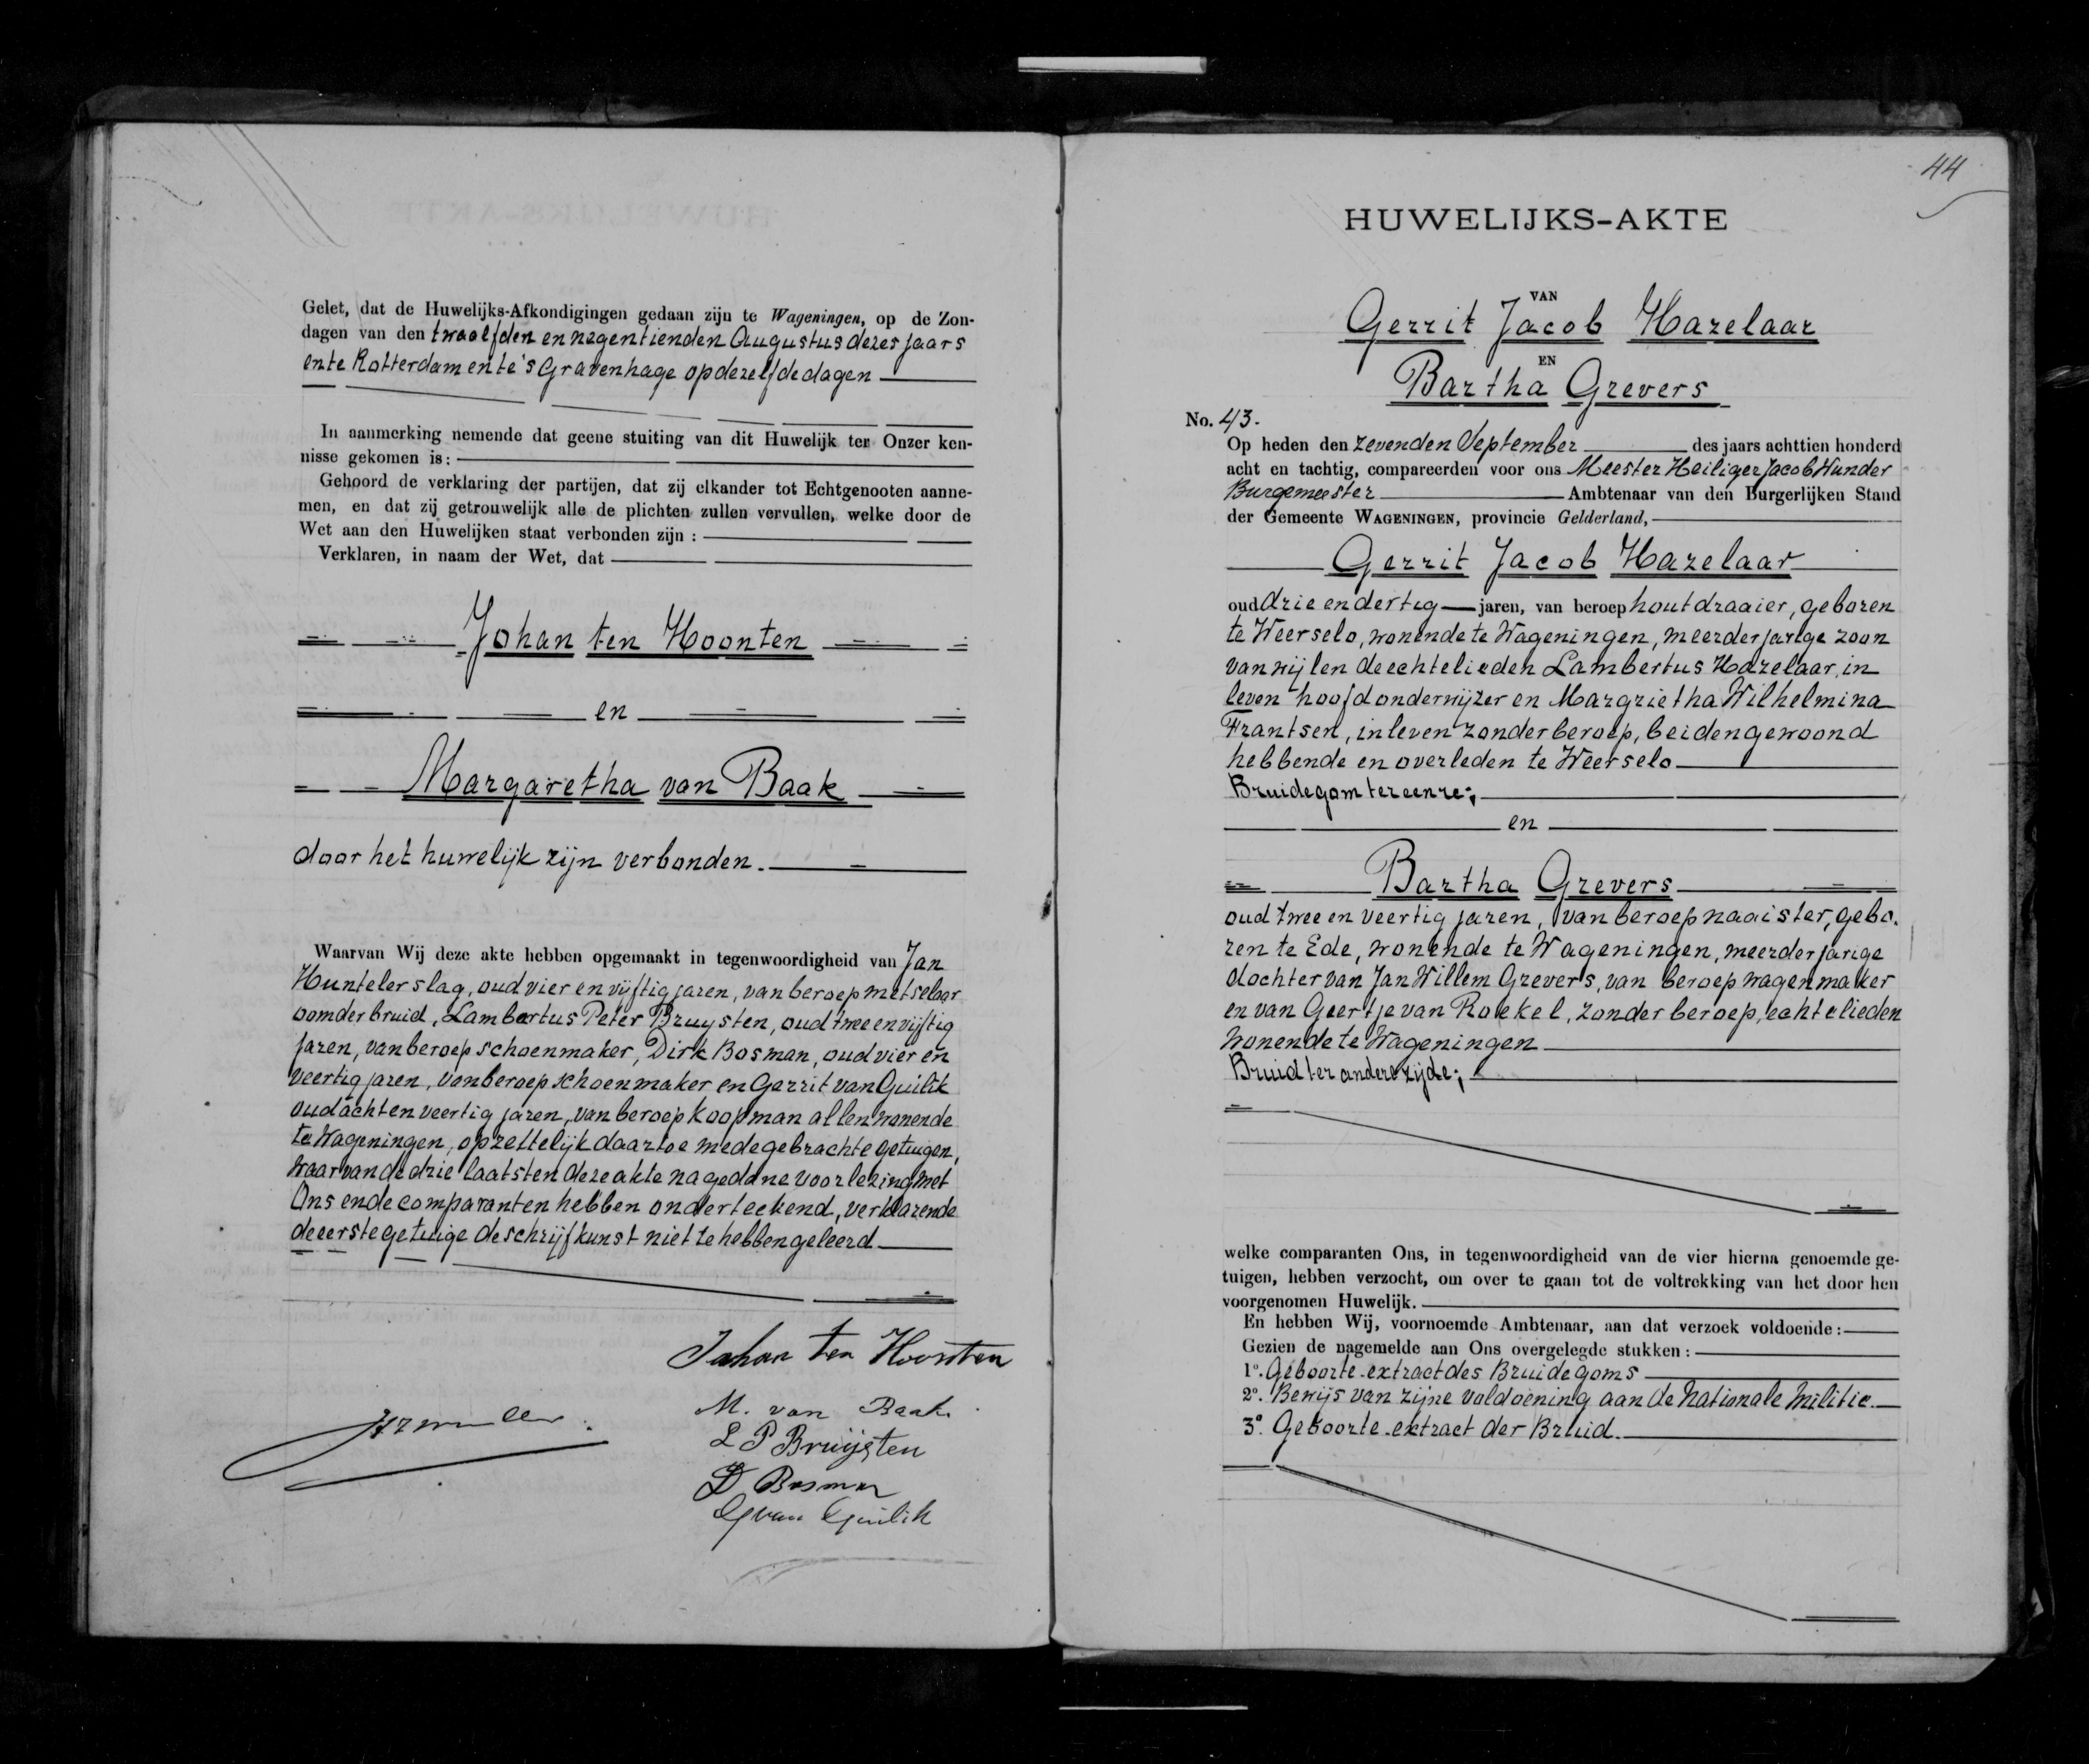 Gelet, dat de Huwelijks-Afkondigingen gedaan zijn te Wageningen, op de Zon-
dagen van den twaalfden en negentienden Augustus dezes jaars
en te Rotterdam en te 's Gravenhage op dezelfde dagen
In aanmerking nemende dat geene stuiting van dit Huwelijk ter Onzer ken-
nisse gekomen is:
Gehoord de verklaring der partijen, dat zij elkander tot Echtgenooten aanne-
men, en dat zij getrouwelijk alle de plichten zullen vervullen, welke door de
Wet aan den Huwelijken staat verbonden zijn :
Verklaren, in naam der Wet, dat
Johan ten Hoonten
en
Margaretha van Baak
door het huwelijk zijn verbonden.
Waarvan Wij deze akte hebben opgemaakt in tegenwoordigheid van Jan
Huntelerslag, oud vier en vijftig jaren, van beroep metselaar
oom der bruid, Lambertus Peter Bruysten, oud twee en vijftig
jaren, van beroep schoenmaker, Dirk Bosman, oud vier en
veertig jaren, van beroep schoenmaker en Gerrit van Guilik
oud acht en veertig jaren, van beroep koopman allen wonende
te Wageningen, opzettelijk daartoe medegebrachte getuigen,
waarvan de drie laatsten deze akte na gedane voorlezing met
Ons en de comparanten hebben onderteekend, verklarende
de eerste getuige de schrijfkunst niet te hebben geleerd
Johan ten Hoonten
M. van Baak
L P Bruijsten
D Bosman
G van Guilik
44
HUWELIJKS-AKTE
VAN
Gerrit Jacob Hazelaar
EN
Bartha Grevers
No. 43.
Op heden den zevenden September des jaars achttien honderd
acht en tachtig, compareerden voor ons Meester Heiliger Jacob Wunder
Burgemeester Ambtenaar van den Burgerlijken Stand
der Gemeente WAGENINGEN, provincie Gelderland,
Gerrit Jacob Hazelaar
oud drie en dertig jaren, van beroep houtdraaier, geboren
te Weerselo, wonende te Wageningen, meerderjarige zoon
van wijlen de echtelieden Lambertus Hazelaar, in
leven hoofdonderwijzer en Margrietha Wilhelmina
Frantsen, in leven zonder beroep, beiden gewoond
hebbende en overleden te Weerselo
Bruidegom ter eenre;
en
Bartha Grevers
oud twee en veertig jaren, van beroep naaister, gebo.
ren te Ede, wonende te Wageningen, meerderjarige
dochter van Jan Willem Grevers, van beroep wagenmaker
en van Geertje van Roekel, zonder beroep, echtelieden
wonende te Wageningen
Bruid ter andere zijde;
welke comparanten Ons, in tegenwoordigheid van de vier hierna genoemde ge-
tuigen, hebben verzocht, om over te gaan tot de voltrekking van het door hen
voorgenomen Huwelijk.
En hebben Wij, voornoemde Ambtenaar, aan dat verzoek voldoende:
Gezien de nagemelde aan Ons overgelegde stukken :
1°. Geboorte-extract des Bruidegoms
2°. Bewijs van zijne voldoening aan de Nationale Militie.
3°. Geboorte-extract der Bruid.